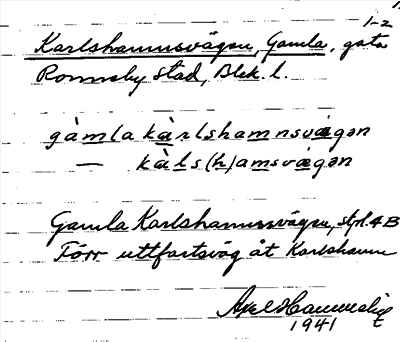 1-2
Karlshamnsvägen, Gamla, gata
Ronneby stad, Blek. l.
gàmla kàrlshamnsvægən
— kàls(h)amsvægən
Gamla Karlshamnsvägen, stpl. 4B
Förr utfartsväg åt Karlshamn
Axel
1941